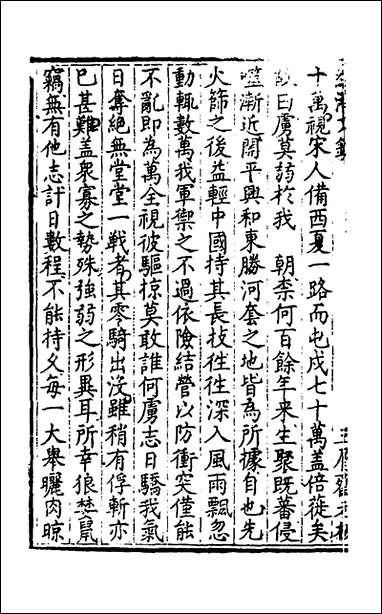 十萬視宋人備西夏一路而屯戍七十萬蓋倍蓰矣
故曰虜莫弱於我　朝柰何百餘年来生聚既蕃侵
噬漸近開平興和東勝河套之地皆為所據自也先
火篩之後益輕中國持其長技徃徃深入風雨飄忽
動輒數萬我軍禦之不過依險結營以防衝突僅能
不亂即為萬全視彼驅掠莫敢誰何虜志日驕我氣
日奪絕無堂堂一戰者其零騎出沒雖稍有俘斬亦
已甚難蓋衆寡之勢殊強弱之形異耳所幸狼焚鼠
竊無有他志計日數程不能持久每一大舉曬肉晾